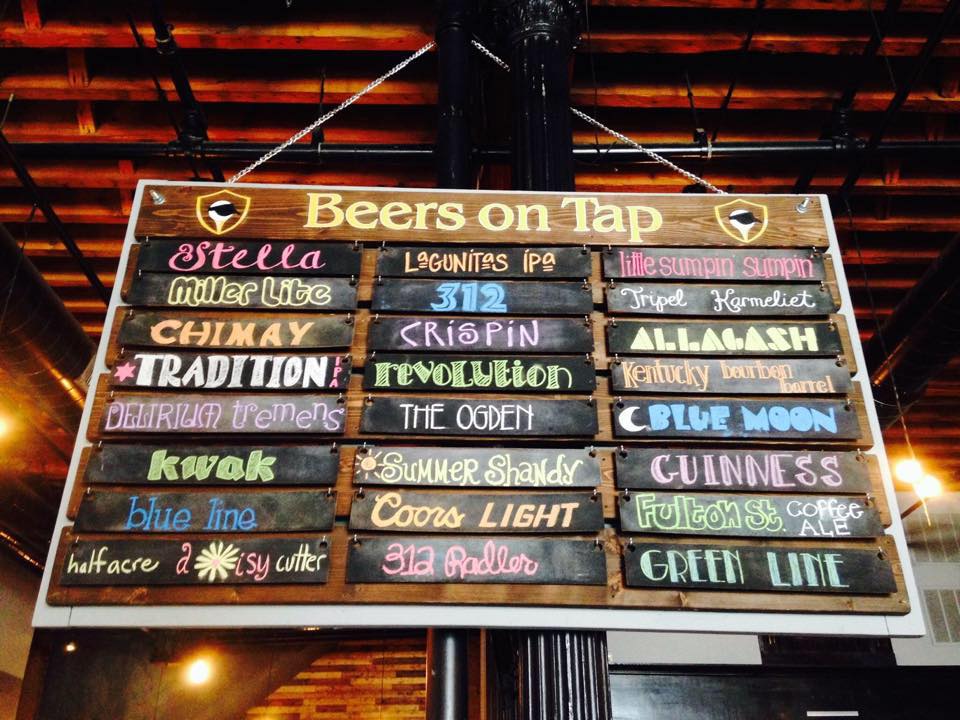 Beers on Tap
Stella
Miller Lite
CHIMAY
TRADITION IPA
DELIRIUM tremens
kwak
blue line
half acre daisy cutter
LAGUNITAS IPA
312
CRISPIN
revolution
THE OGDEN
SUMMER SHANDY
Coors LIGHT
312 Radler
little sumpin sumpin
Tripel Karmeliet
ALLAGASH
Kentucky bourbon barrel
BLUE MOON
GUINNESS
Fulton St COFFEE ALE
GREEN LINE